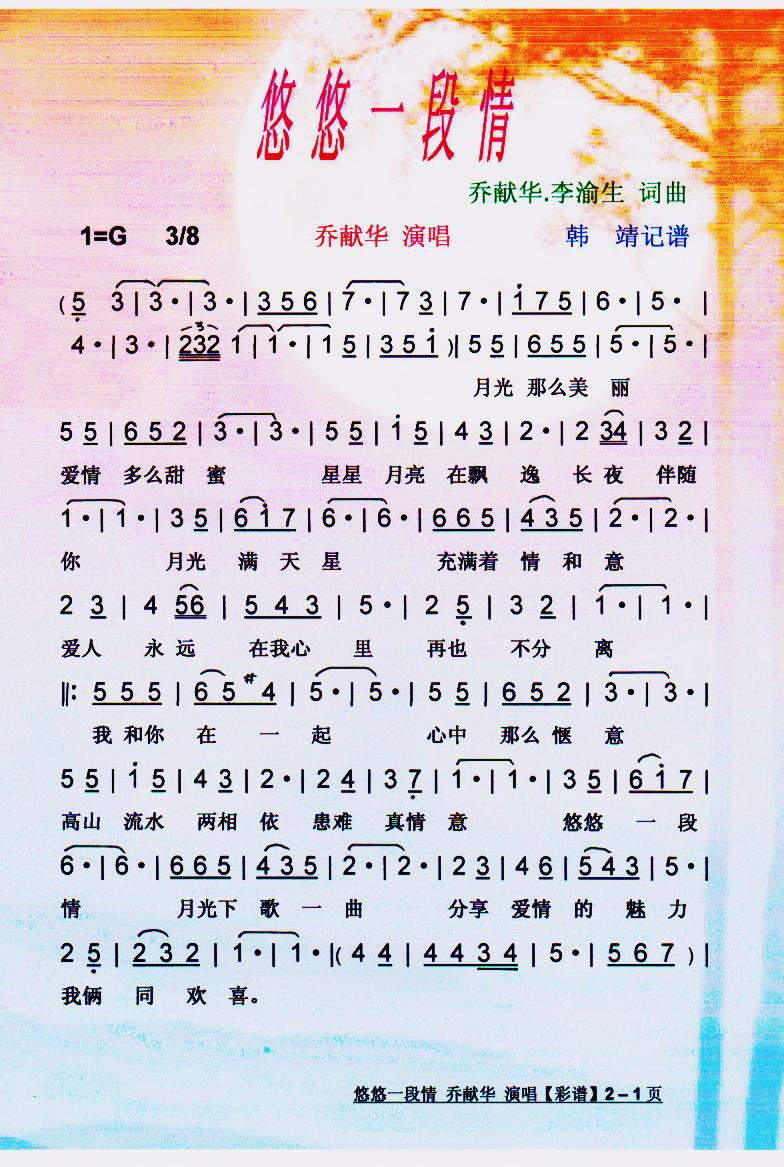 悠悠一段情
乔献华.李渝生 词曲
1=G 3/8 乔献华 演唱 韩 靖记谱
( 5 3 | 3 · | 3 · | 3 5 6 | 7 · | 7 3 | 7 · | 1 7 5 | 6 · | 5 · |
4 · | 3 · | 3 232 1 | 1 · | 1 · | 1 5 | 3 5 1 ) | 5 5 | 6 5 5 | 5 · | 5 · |
月光 那么美 丽
5 5 | 6 5 2 | 3 · | 3 · | 5 5 | 1 5 | 4 3 | 2 · | 2 34 | 3 2 |
爱情 多么甜 蜜 星星 月亮 在飘 逸 长 夜 伴随
1 · | 1 · | 3 5 | 6 1 7 | 6 · | 6 · | 6 6 5 | 4 3 5 | 2 · | 2 · |
你 月光 满 天 星 充满着 情 和 意
2 3 | 4 56 | 5 4 3 | 5 · | 2 5 | 3 2 | 1 · | 1 · |
爱人 永 远 在我心 里 再也 不分 离
‖: 5 5 5 | 6 5 #4 | 5 · | 5 · | 5 5 | 6 5 2 | 3 · | 3 · |
我 和你 在 一 起 心中 那么 惬 意
5 5 | 1 5 | 4 3 | 2 · | 2 4 | 3 7 | 1 · | 1 · | 3 5 | 6 1 7 |
高山 流水 两相 依 患难 真情 意 悠悠 一 段
6 · | 6 · | 6 6 5 | 4 3 5 | 2 · | 2 · | 2 3 | 4 6 | 5 4 3 | 5 · |
情 月光下 歌 一 曲 分享 爱情 的 魅 力
2 5 | 2 3 2 | 1 · | 1 · | ( 4 4 | 4 4 3 4 | 5 · | 5 6 7 ) |
我俩 同 欢 喜。
悠悠一段情 乔献华 演唱【彩谱】2－1页